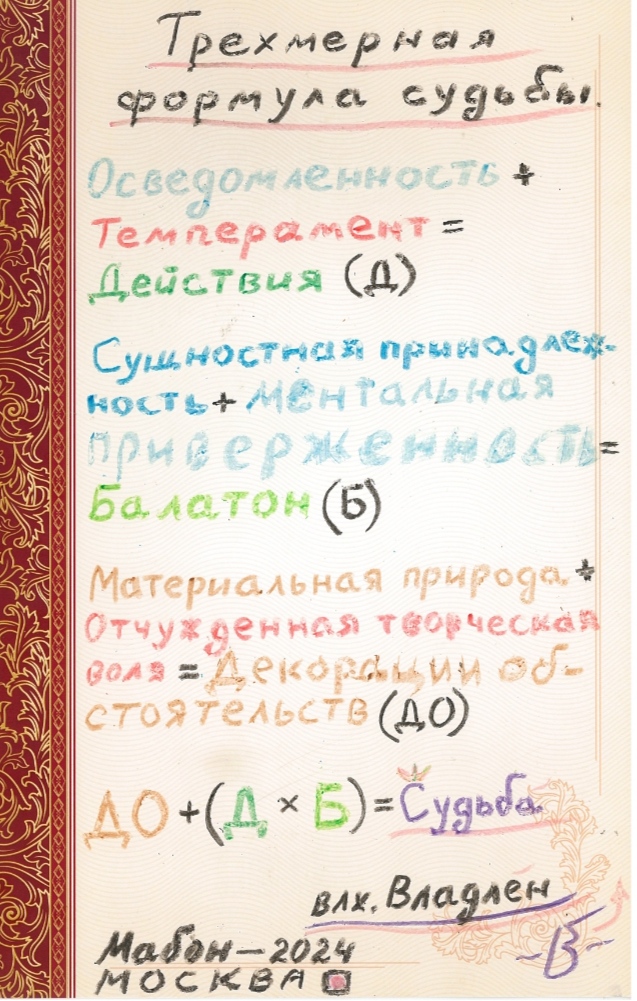 Трехмерная
формула судьбы.
Осведомленность +
Темперамент =
Действия (Д)
Сущностная принадлеж-
ность + ментальная
приверженность =
Балатон (Б)
Материальная природа +
Отчужденная творческая
воля = Декорации об-
стоятельств (ДО)
ДО + (Д × Б) = Судьба
влх. Владлен
Мабон — 2024
МОСКВА
-В-